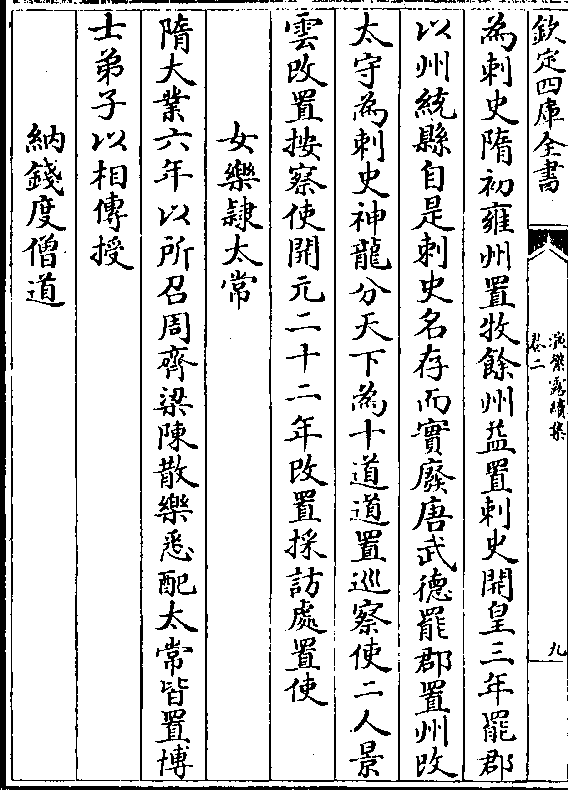 欽定四庫全書
演繁露續集
卷二
九
為刺史隋初雍州置牧餘州益置刺史開皇三年罷郡
以州統縣自是刺史名存而實廢唐武德罷郡置州改
太守為刺史神龍分天下為十道道置巡察使二人景
雲改置按察使開元二十二年改置採訪處置使
女樂隷太常
隋大業六年以所召周齊梁陳散樂悉配太常皆置博
士弟子以相傳授
納錢度僧道